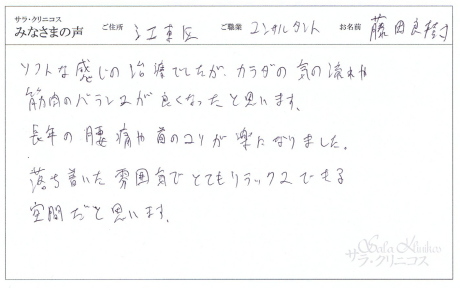 サラ・クリニコス
みなさまの声 ご住所 江東区 ご職業 コンサルタント お名前 藤田良樹
ソフトな感じの治療でしたが、カラダの気の流れや
筋肉のバランスが良くなったと思います。
長年の腰痛や首のコリが楽になりました。
落ち着いた雰囲気でとてもリラックスできる
空間だと思います。
Sala Klinikos
サラ・クリニコス